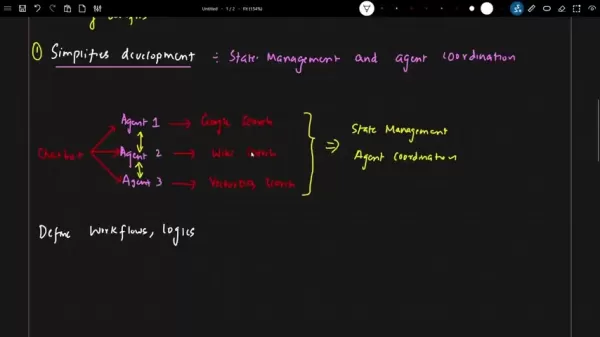 Untitled - 1 / 2
① Simplifies development ÷ State Management and agent coordination
Agent 1 → Google Search
Chatbot Agent 2 → Wiki Search
Agent 3 → Search
⇒ State Management
Agent coordination
Define workflows, logics